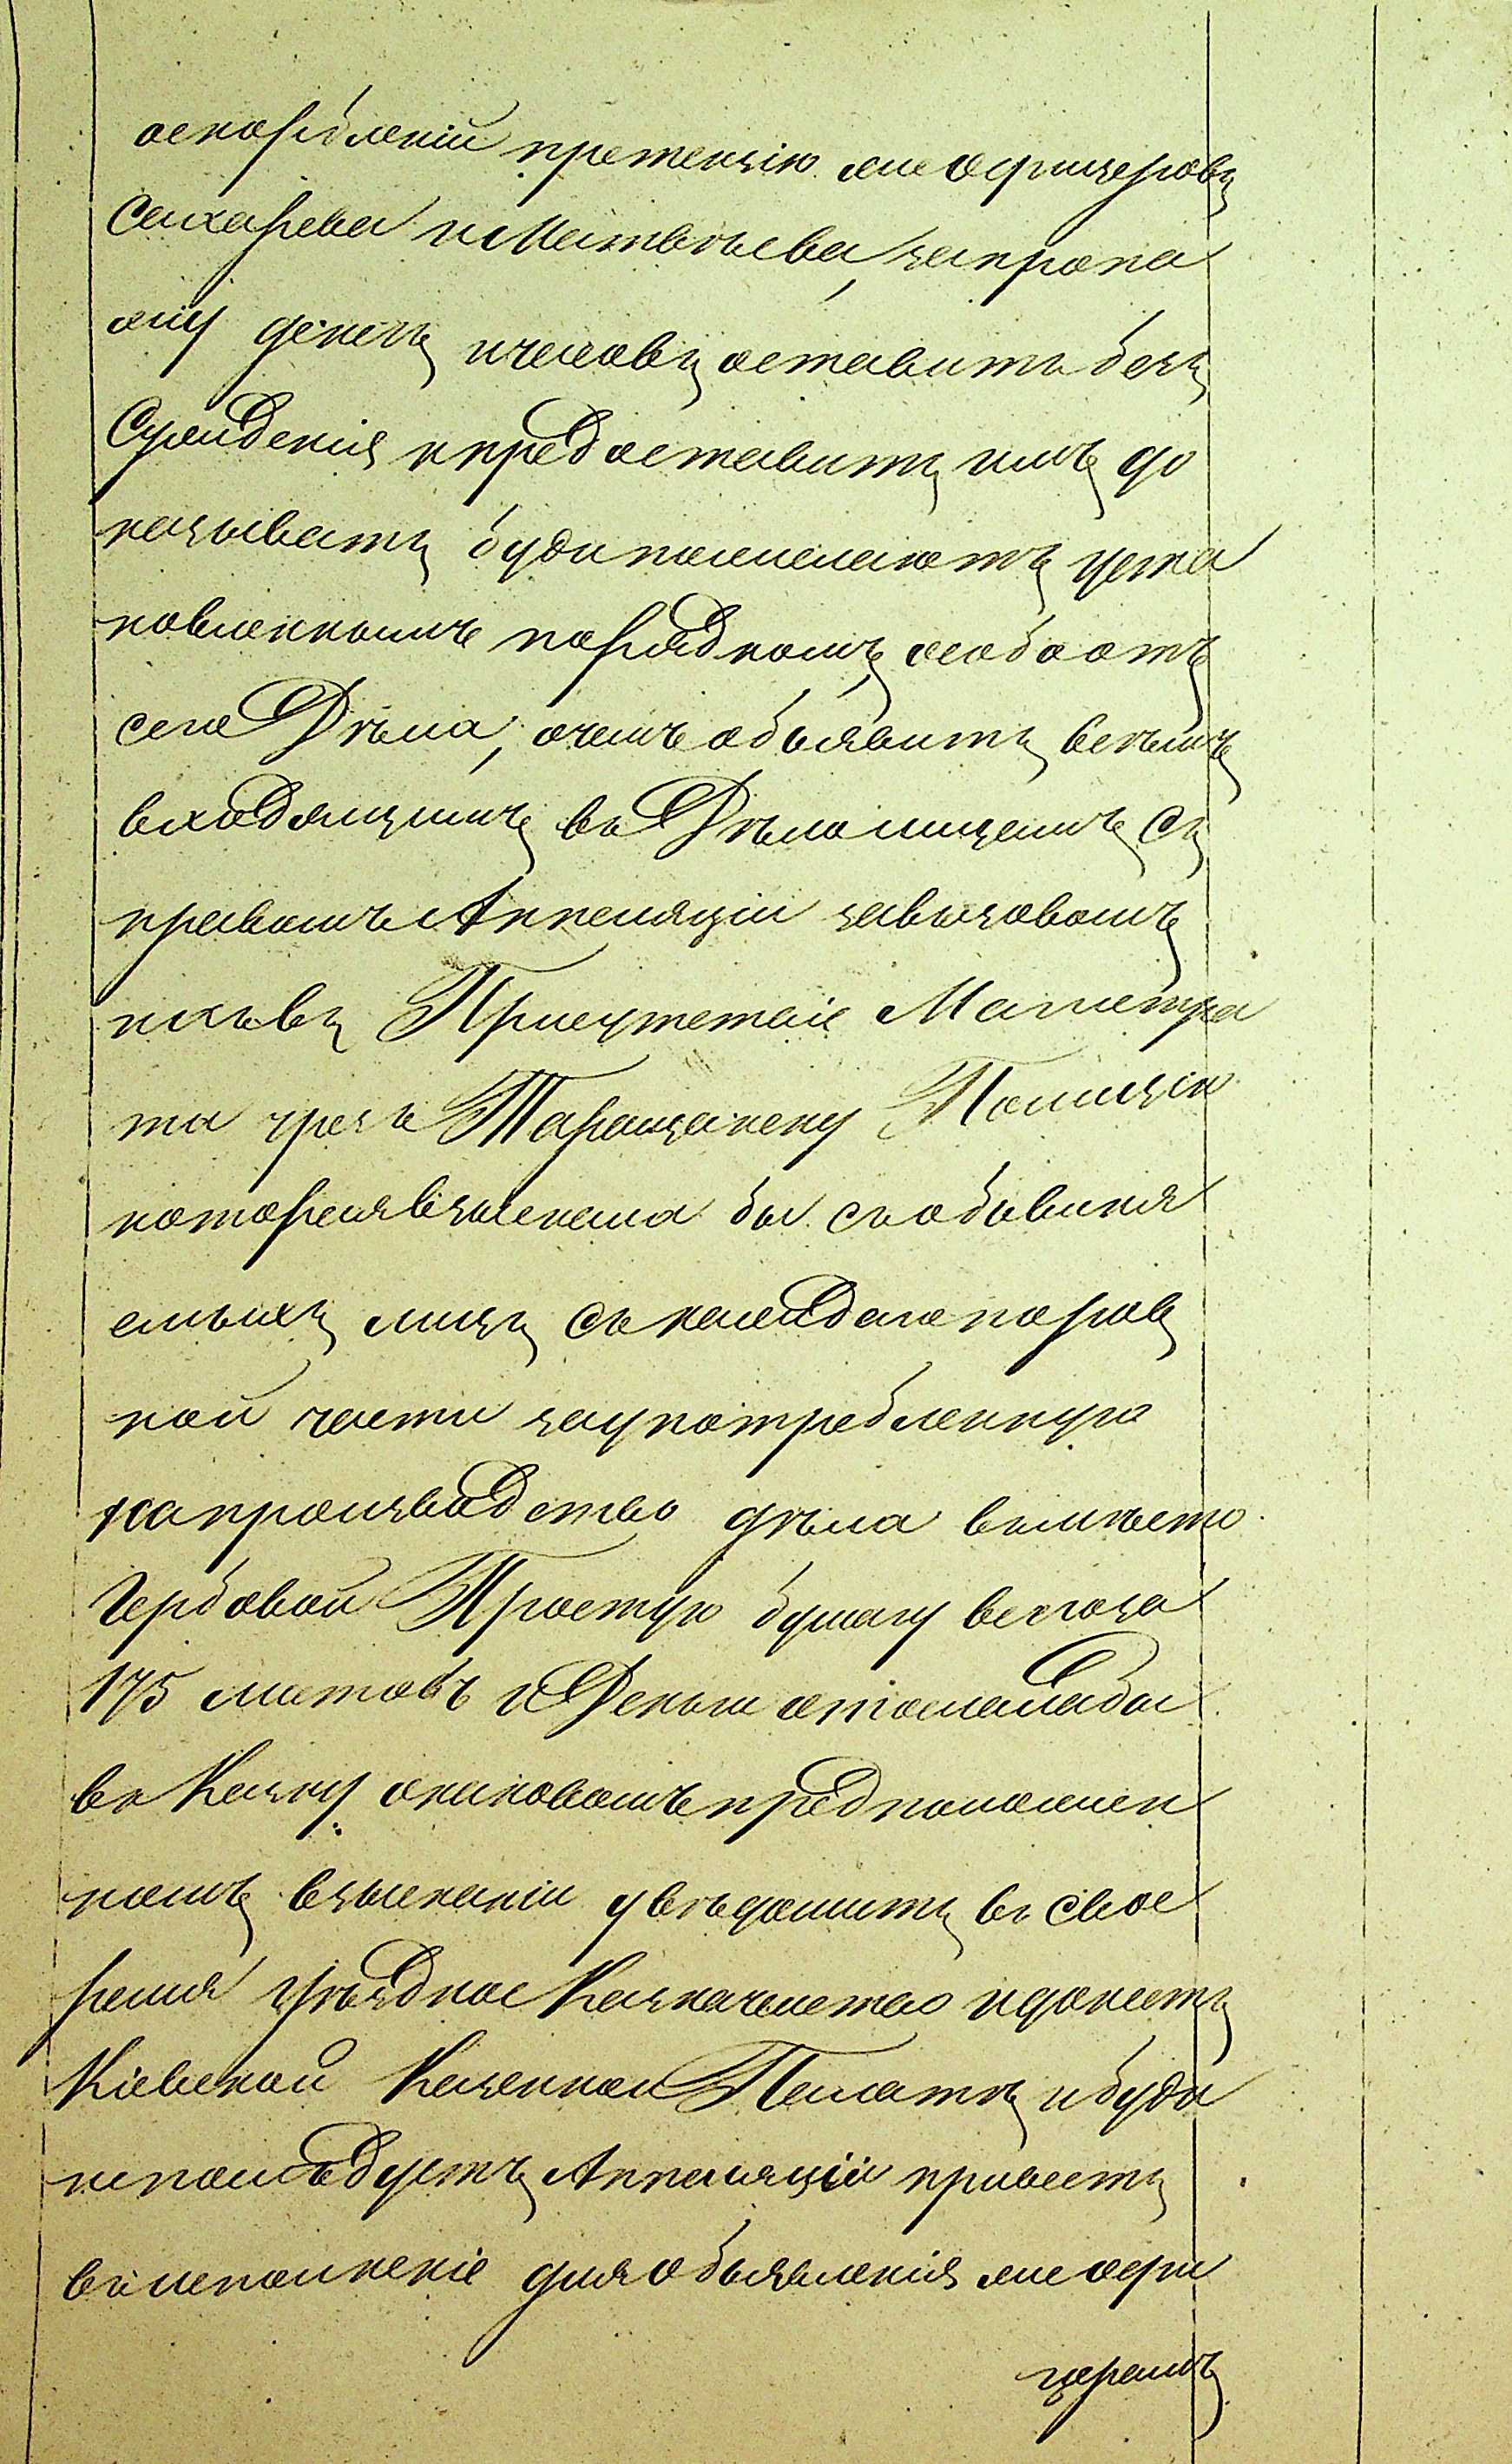 оскорбленіи претензію же офицеровъ
Сахарева и Матвѣева, за пропа
жу денегъ и часовъ оставить безъ
Сужденія и предоставить имъ до
казывать буди пожелаютъ уста
новленнымъ порядкомъ, особо отъ
сего Дѣла, о чемъ объявить всѣмъ
входящимъ въ Дѣло лицамъ съ
правомъ Аппеляціи за вызовомъ
ихъ въ Присутствіе Магистра
та чрезъ Таращанску Полицію
которая взыскала бы съ обвиня
емыхъ лицъ съ каждаго поров
ной части за употребленную
на производство дѣла вмѣсто
Гербовой Простую бумагу всего за
175 листовъ и Деньги отослала бы
въ Казну о каковомъ предположен
номъ взысканіи увѣдомить въ свое
время уѣздное Казначейство и донесть
Кіевской Казенной Палатѣ, и буди
непослѣдуетъ Аппеляціи привесть
въ исполненіе для объявленія же офи
церамъ